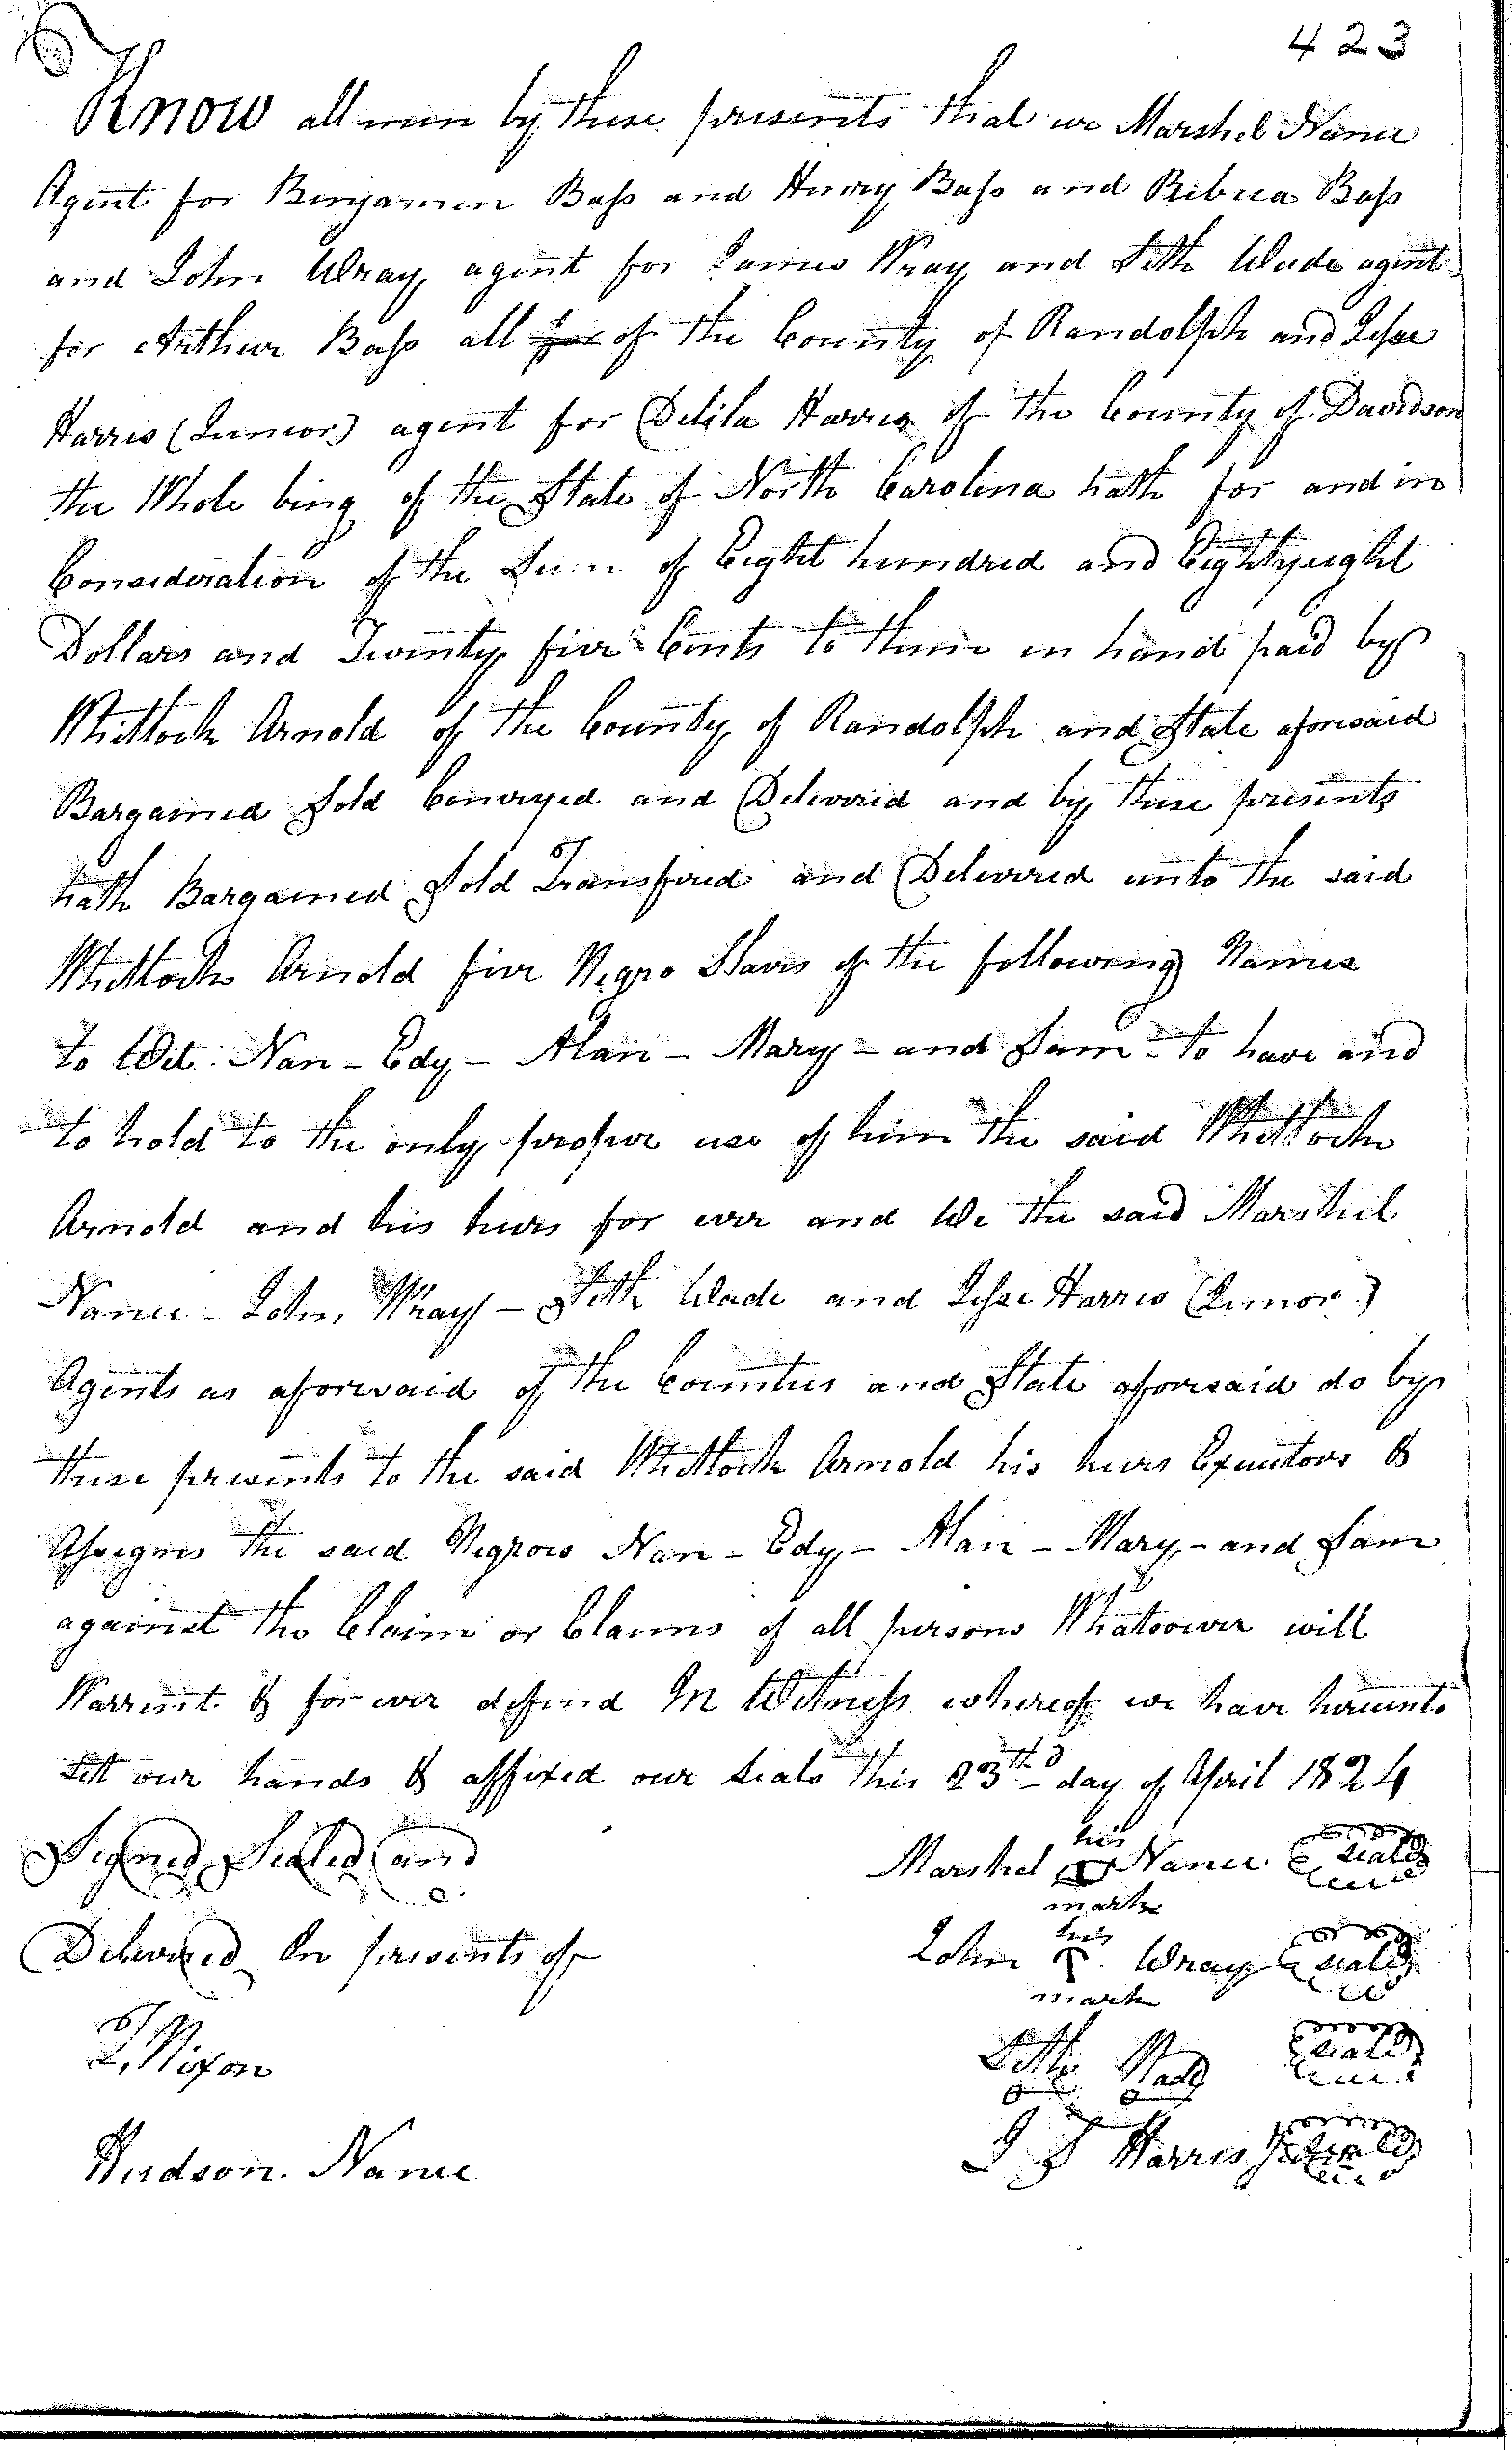 423
Know all men by these presents that we Marshel Nance
Agent for Benjamen Bass and Henry Bass and Rebeca Bass
and John Wray agent for James Wray and Seth Wade agent
for Arthur Bass all for of the County of Randolph and Jesse
Harris (Junior) agent for Delila Harris of the County of Davidson
the Whole being of the State of North Carolina hath for and in
Consideration of the Sum of Eight hundred and Eightyeight
Dollars and Twenty five Cents to them in hand paid by
Whitlock Arnold of the County of Randolph and State aforesaid
Bargained Sold Conveyed and Delivered and by these presents
hath Bargained Sold Transfered and Delivered unto the said
Whitlock Arnold five Negro Slaves of the following Names
to Wit. Nan - Edy - Alan - Mary - and Sam - to have and
to hold to the only proper use of him the said Whitlock
Arnold and his heirs for ever and We the said Marshel
Nance - John, Wray - Seth Wade and Jesse Harris (Junior)
Agents as aforesaid of the Counties and State aforesaid do by
these presents to the said Whitlock Arnold his heirs Executors &
Assignes the said Negroes Nan - Edy - Alan - Mary - and Sam
against the Claim or Claims of all persons Whatsoever will
Warrent & for ever defend In Witness whereof we have hereunto
Set our hands & affixed our Seals this 23th day of April 1824
Signed Sealed and
Delivered In presents of
Marshel his mark Nance seal
John his mark Wray seal
Seth Wade seal
J Harris seal
Nixon
Hudson. Nance